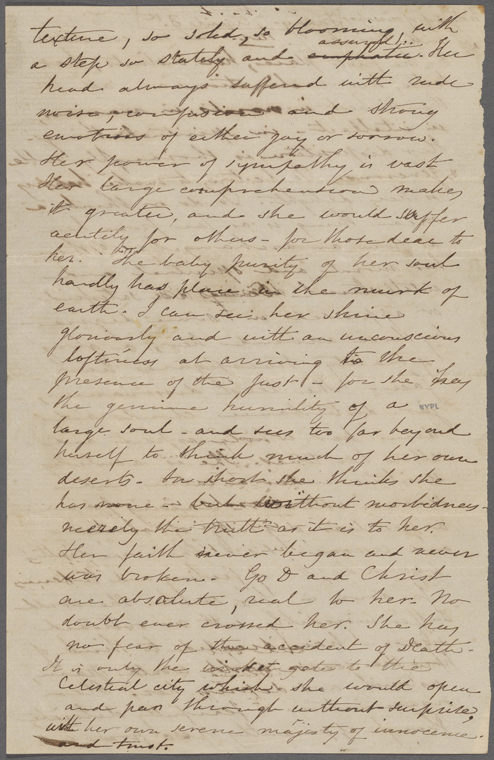 texture, so solid, so blooming, with
assured!
a step so stately and emphatic. Her
head always suffered with rude
noise, confusion and strong
emotions of either joy or sorrow.
Her power of sympathy is vast
Her large comprehension makes
it greater, and she would suffer
acutely for others - for those dear to
her. The baby purity of her soul
hardly has place in the murk of
earth. I can see her shine
gloriously and with an unconscious
loftiness at arriving to the
presence of the Just - for she has
the genuine humility of a
NYPL
large soul - and sees too far beyond
herself to think much of her own
deserts. In short she thinks she
has none - but without morbidness -
merely the truth as it is to her.
Her faith never began and never
was broken. God and Christ
are absolute, real to her. No
doubt ever crossed her. She has
no fear of the accident of Death.
It is only the wicket gate to the
Celestial city which she would open
and pass through without surprise,
with her own serene majesty of innocence
and trust.